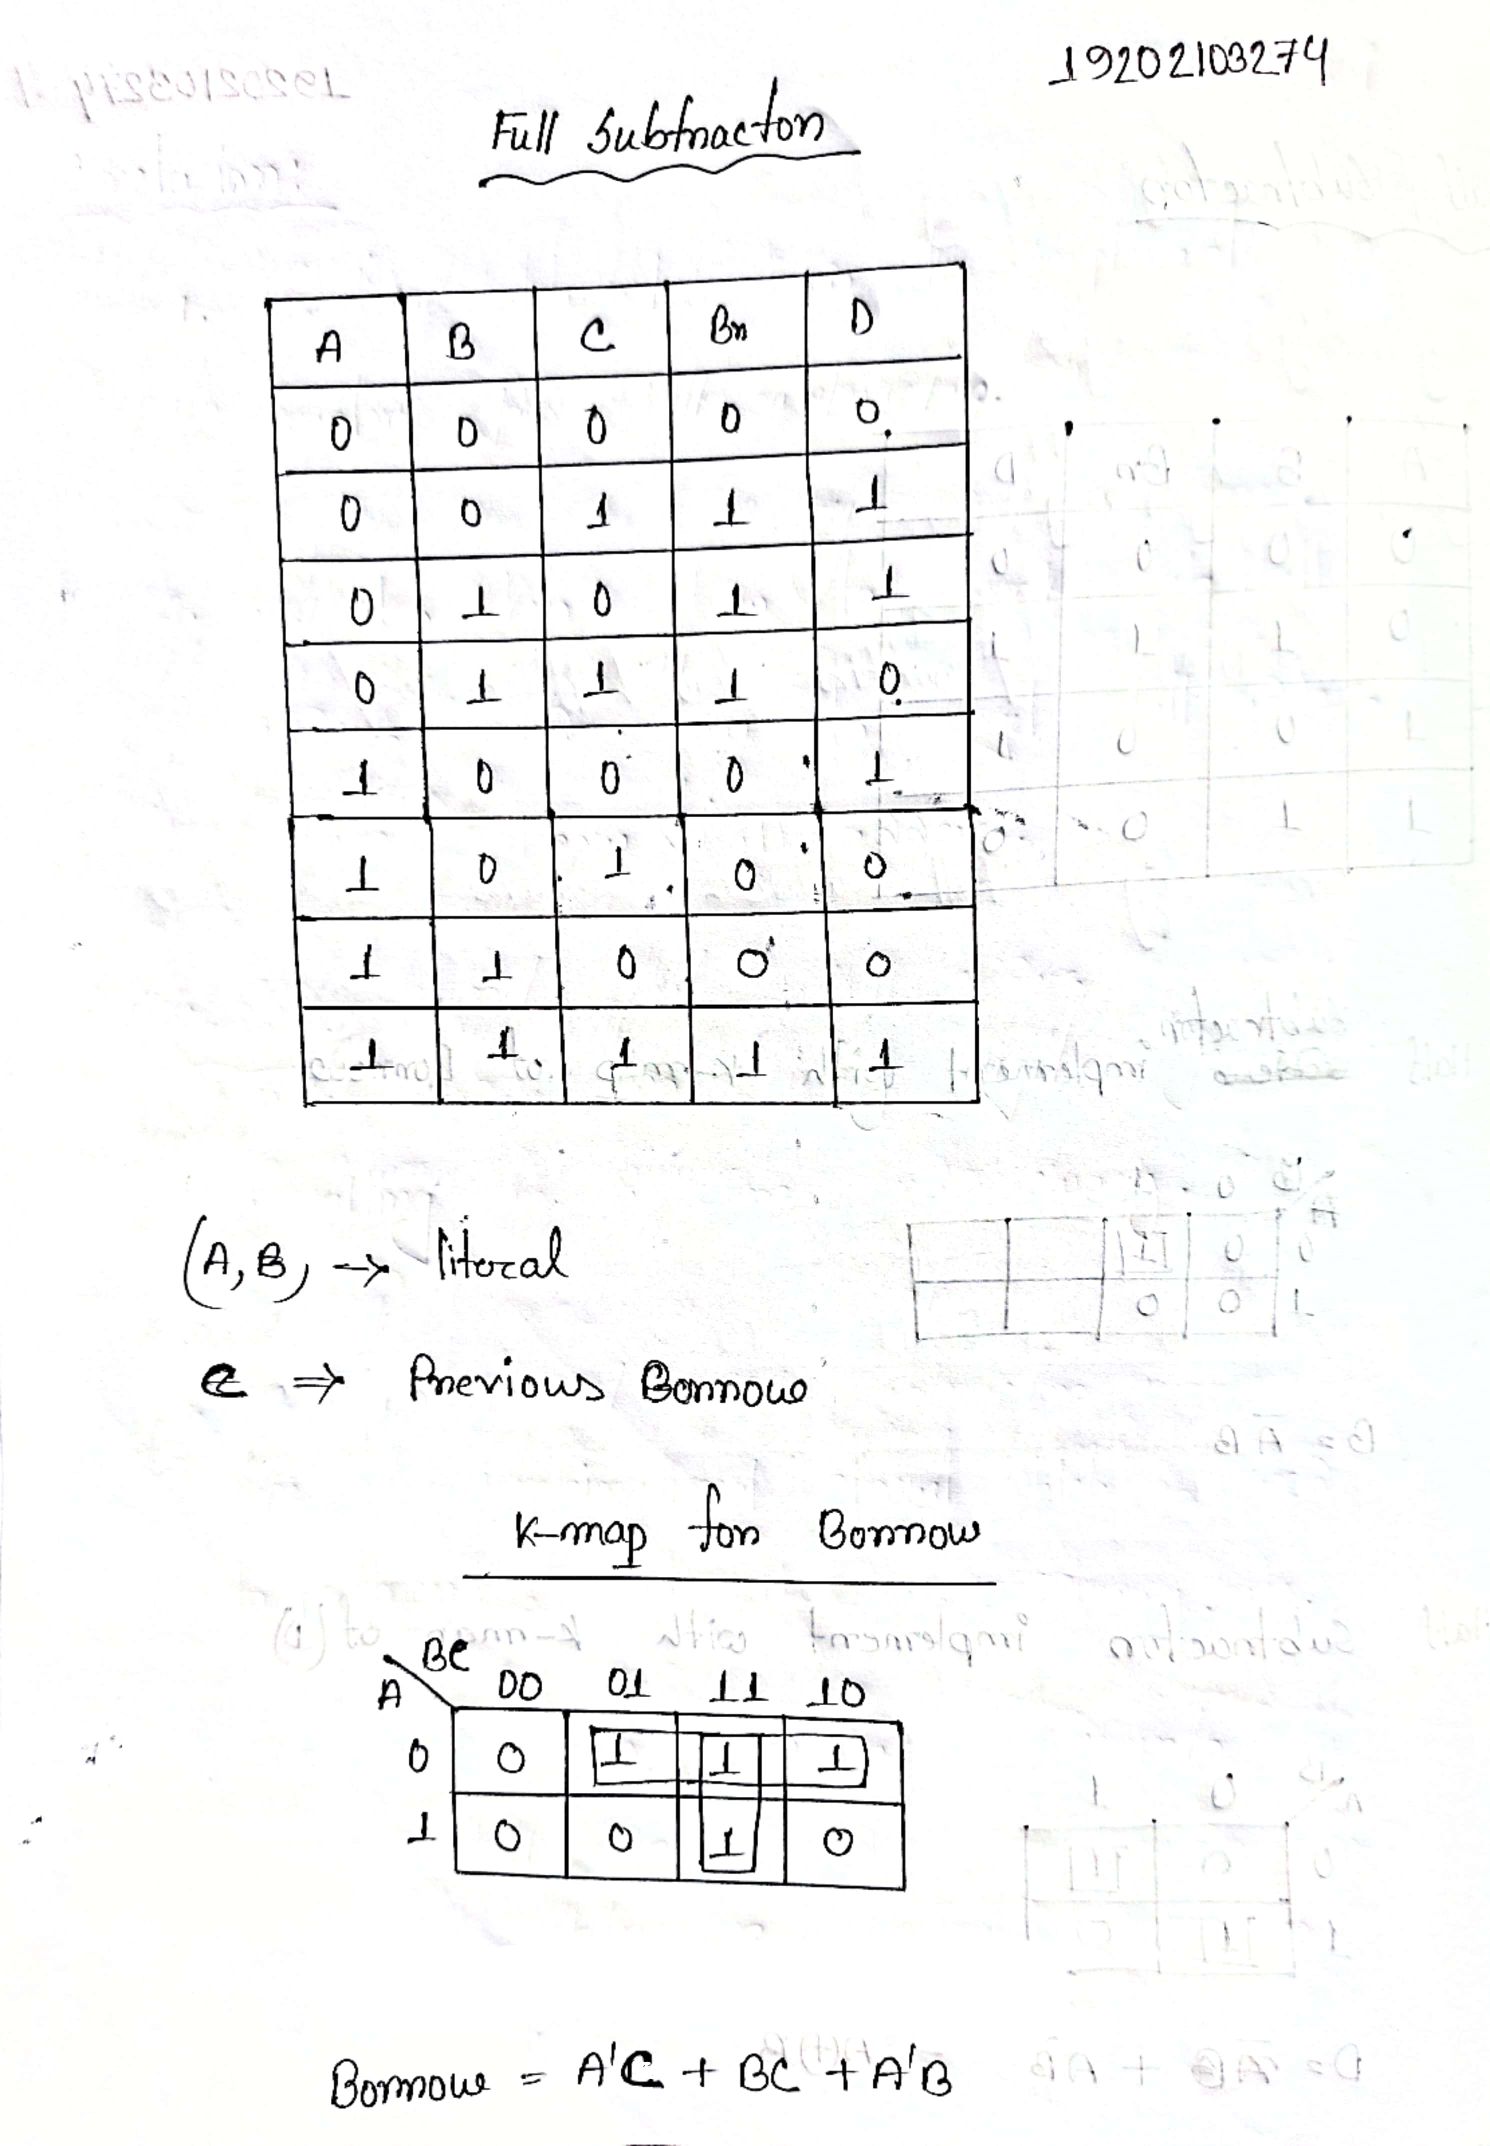 19202103274
Full Subtractor
A B C Br D
0 0 0 0 0
0 0 1 1 1
0 1 0 1 1
0 1 1 1 0
1 0 0 0 1
1 0 1 0 0
1 1 0 0 0
1 1 1 1 1
(A, B) → literal
C ⇒ Previous Borrow
K-map for Borrow
BC
A 00 01 11 10
0 0 1 1 1
1 0 0 1 0
Borrow = A'C + BC + A'B